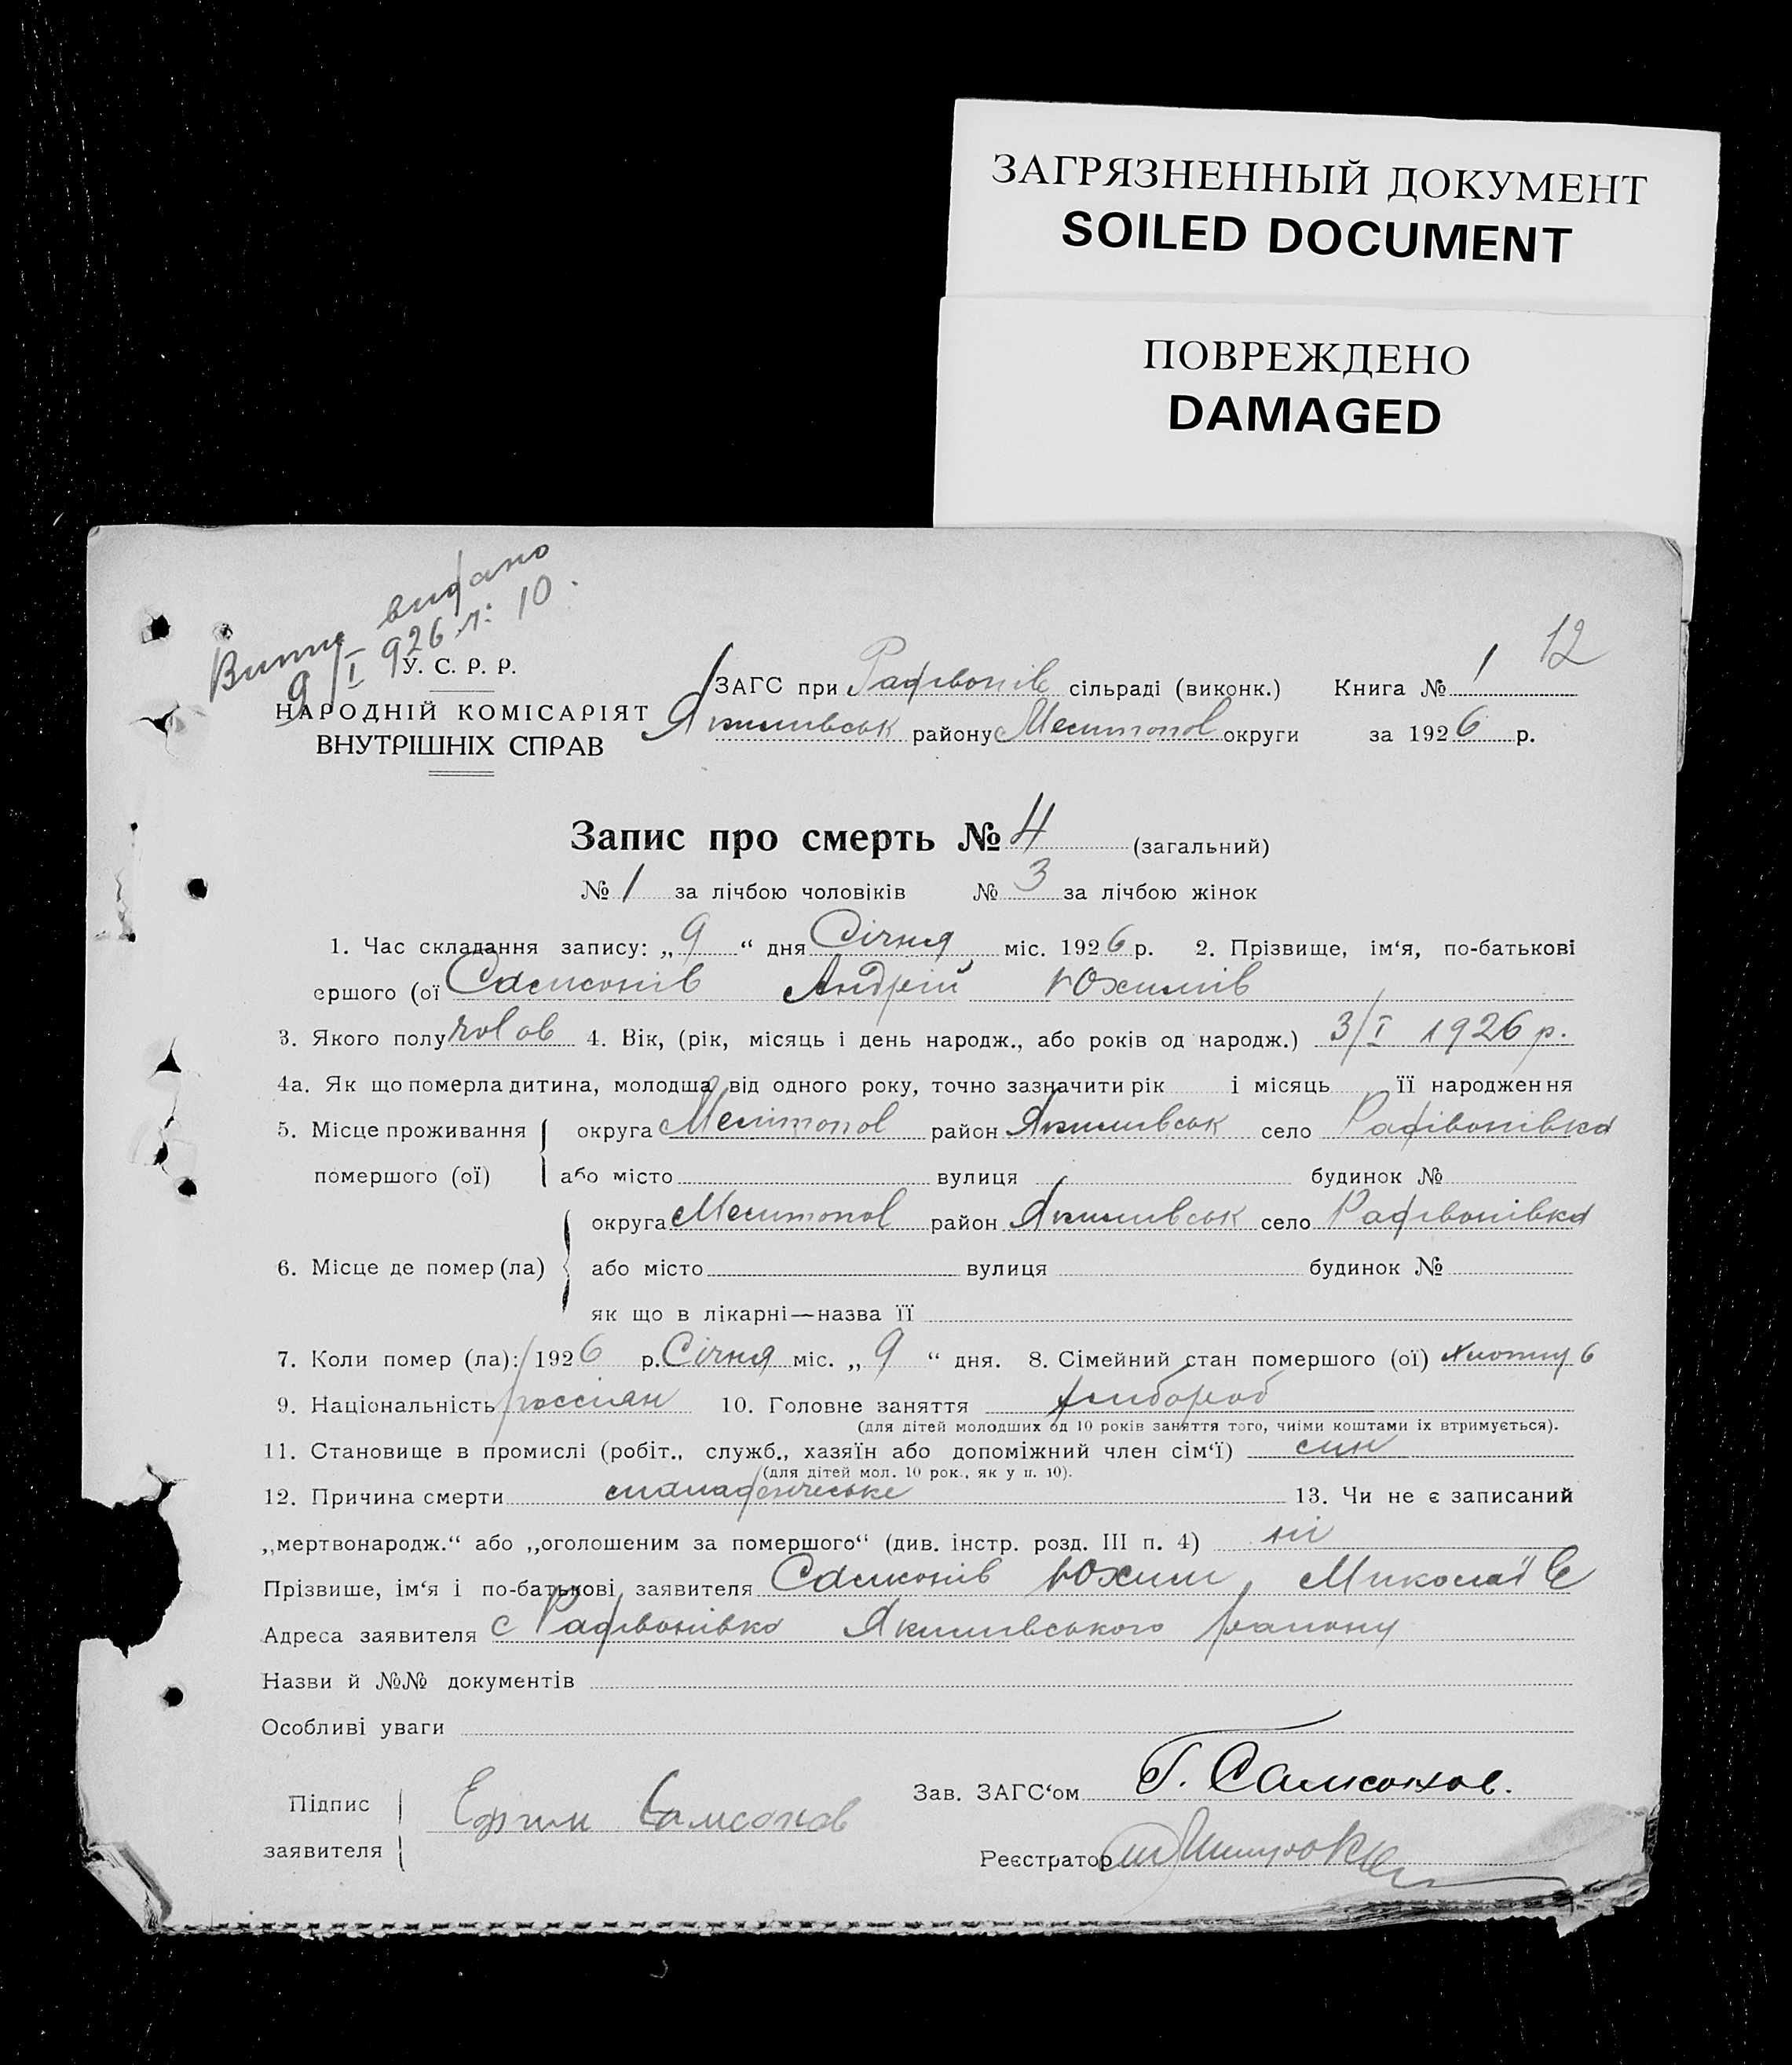 ЗАГРЯЗНЕННЫЙ ДОКУМЕНТ
SOILED DOCUMENT
ПОВРЕЖДЕНО
DAMAGED
Витяг видано
9/I 926 г. 10.
12
У. С. Р. Р.
НАРОДНІЙ КОМІСАРІЯТ
ВНУТРІШНІХ СПРАВ
ЗАГС при Радівонів сільраді (виконк.) Книга № 1
Якимівськ району Мелитопол округи за 1926 р.
Запис про смерть № 4 (загальний)
№ 1 за лічбою чоловіків № 3 за лічбою жінок
1. Час складання запису: „9“ дня Січня міс. 1926 р. 2. Прізвище, ім‘я, по-батькові
ершого (ої Самсонів Андрій Юхимів
3. Якого полу чолов 4. Вік, (рік, місяць і день народж., або років од народж.) 3/I 1926 р.
4а. Як що померла дитина, молодша від одного року, точно зазначити рік і місяць її народження
5. Місце проживання округа Мелітопол район Якимівськ село Радівонівка
помершого (ої) або місто вулиця будинок №
округа Мелитопол район Якимівськ село Радівонівка
6. Місце де помер (ла) або місто вулиця будинок №
як що в лікарні—назва її
7. Коли помер (ла): 1926 р. Січня міс. „9“ дня. 8. Сімейний стан помершого (ої)
9. Національність россіян 10. Головне заняття хлібороб
(для дітей молодших од 10 років заняття того, чиїми коштами іх втримується).
11. Становище в промислі (робіт., служб., хазяїн або допоміжний член сім‘ї) син
(для дітей мол. 10 рок., як у п. 10).
12. Причина смерти 13. Чи не є записаний
„мертвонародж.“ або „оголошеним за помершого“ (див. інстр. розд. III п. 4) ні
Прізвише, ім‘я і по-батькові заявителя Самсонів Юхим Миколаїв
Адреса заявителя с Радівонівка Якимівського району
Назви й №№ документів
Особливі уваги
Підпис заявителя Ефим Самсонов
Зав. ЗАГС‘ом Г. Самсонов.
Реєстратор